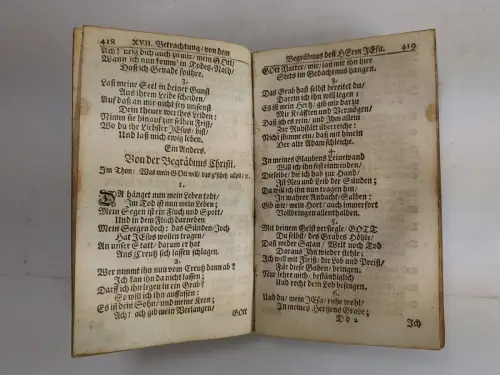 418 XVII. Betrachtung/von dem
Ach! neig dich auch zu mir/mein GOtt/
Wann ich nun komm' in Todes-Nöth/
Daß ich Genade spühre.
3.
Laß meine Seel in deiner Gunst
Aus ihrem Leibe scheiden/
Auf daß an mir nicht sey umsonst
Dein theuer werthes Leiden:
Nimm sie hinauf zur selben Frist/
Wo du ihr Liebster JEsus/bist/
Und laß mich ewig leben.
Ein Anders.
Von der Begräbnus Christi.
Im Thon: Was mein GOtt will/das g'scheh allzeit/
1.
DA hänget nun mein Leben todt/
Im Tod ist nun mein Leben;
Mein Segen ist ein Fluch und Spott/
Und in dem Fluch darneben
Mein Segen doch: das Sünden-Joch
Hat JEsus wollen tragen:
An unser Stalt/darum er hat
Ans Creutz sich lassen schlagen.
2.
Wer nimmt ihn nun vom Creutz dann ab?
Ich kan ihn da nicht lassen:
Darff ich ihn legen in ein Grab?
So will ich ihn auffassen:
Es ist dein Sohn/und meine Kron;
Ach! ach gib mein Verlangen/
GOtt
Begräbnus deß HErrn JEsu. 419
GOtt Vatter/mir/laß mit ihn hier
Stets im Gedächtnus hangen.
3.
Das Grab daß selbst bereitet du/
Darein ich ihn will legen:
Es ist mein Hertz/gib mit darzu
Mit Kräfften und Vermögen/
Daß ich es rein/und Ihm allein
Zur Ruhstätt überreiche:
Nicht stimme ein/daß mit hinein
Der alte Adam schleiche.
4.
In meines Glaubens Leinewand
Will ich ihn fest einwinden/
Dieselbe/die ich hab zur Hand/
Ist Reu und Leid der Sünden;
Da will ich ihn nun tragen hin/
In wahrer Andacht-Salben:
Gib mir/mein Hort/auch immerfort
Vollbringen allenthalben.
5.
Mit deinem Geist versiegle/GOTT
Du selbst/des Grabes Höhle/
Daß weder Satan/Welt noch Tod
Daraus ihn immer stehle:
Ich will mit Fleiß/dir Lob und Preiß/
Für diese Gaben/bringen.
Nur lehre mich/beständiglich
Und recht dein Lob besingen.
6.
Und du/mein JEsu/ruhe wohl/
In meines Hertzens Grabe;
D d 2 Ich